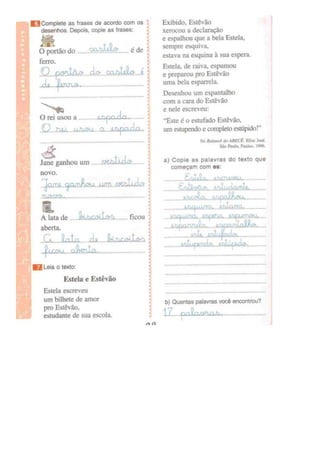 Língua Portuguesa
6. Complete as frases de acordo com os
desenhos. Depois, copie as frases:
O portão do castelo é de
ferro.
O portão do castelo é
de ferro.
O rei usou a espada.
O rei usou a espada.
Jane ganhou um vestido
novo.
Jane ganhou um vestido
novo.
A lata de biscoitos ficou
aberta.
A lata de biscoitos
ficou aberta.
7. Leia o texto:
Estela e Estêvão
Estela escreveu
um bilhete de amor
pro Estêvão,
estudante de sua escola.
Exibido, Estêvão
xerocou a declaração
e espalhou que a bela Estela,
sempre esquiva,
estava na esquina à sua espera.
Estela, de raiva, espumou
e preparou pro Estêvão
uma bela esparrela.
Desenhou um espantalho
com a cara do Estêvão
e nele escreveu:
"Este é o estufado Estêvão,
um estupendo e completo estúpido!"
No Balancê do ABECÊ. Elias José.
São Paulo, Paulus, 1996.
a) Copie as palavras do texto que
começam com es:
Estela escreveu
Estêvão estudante
escola espalhou
esquiva estava
esquina espera espumou
esparrela espantalho
este estufado
estupendo estúpido
b) Quantas palavras você encontrou?
17 palavras